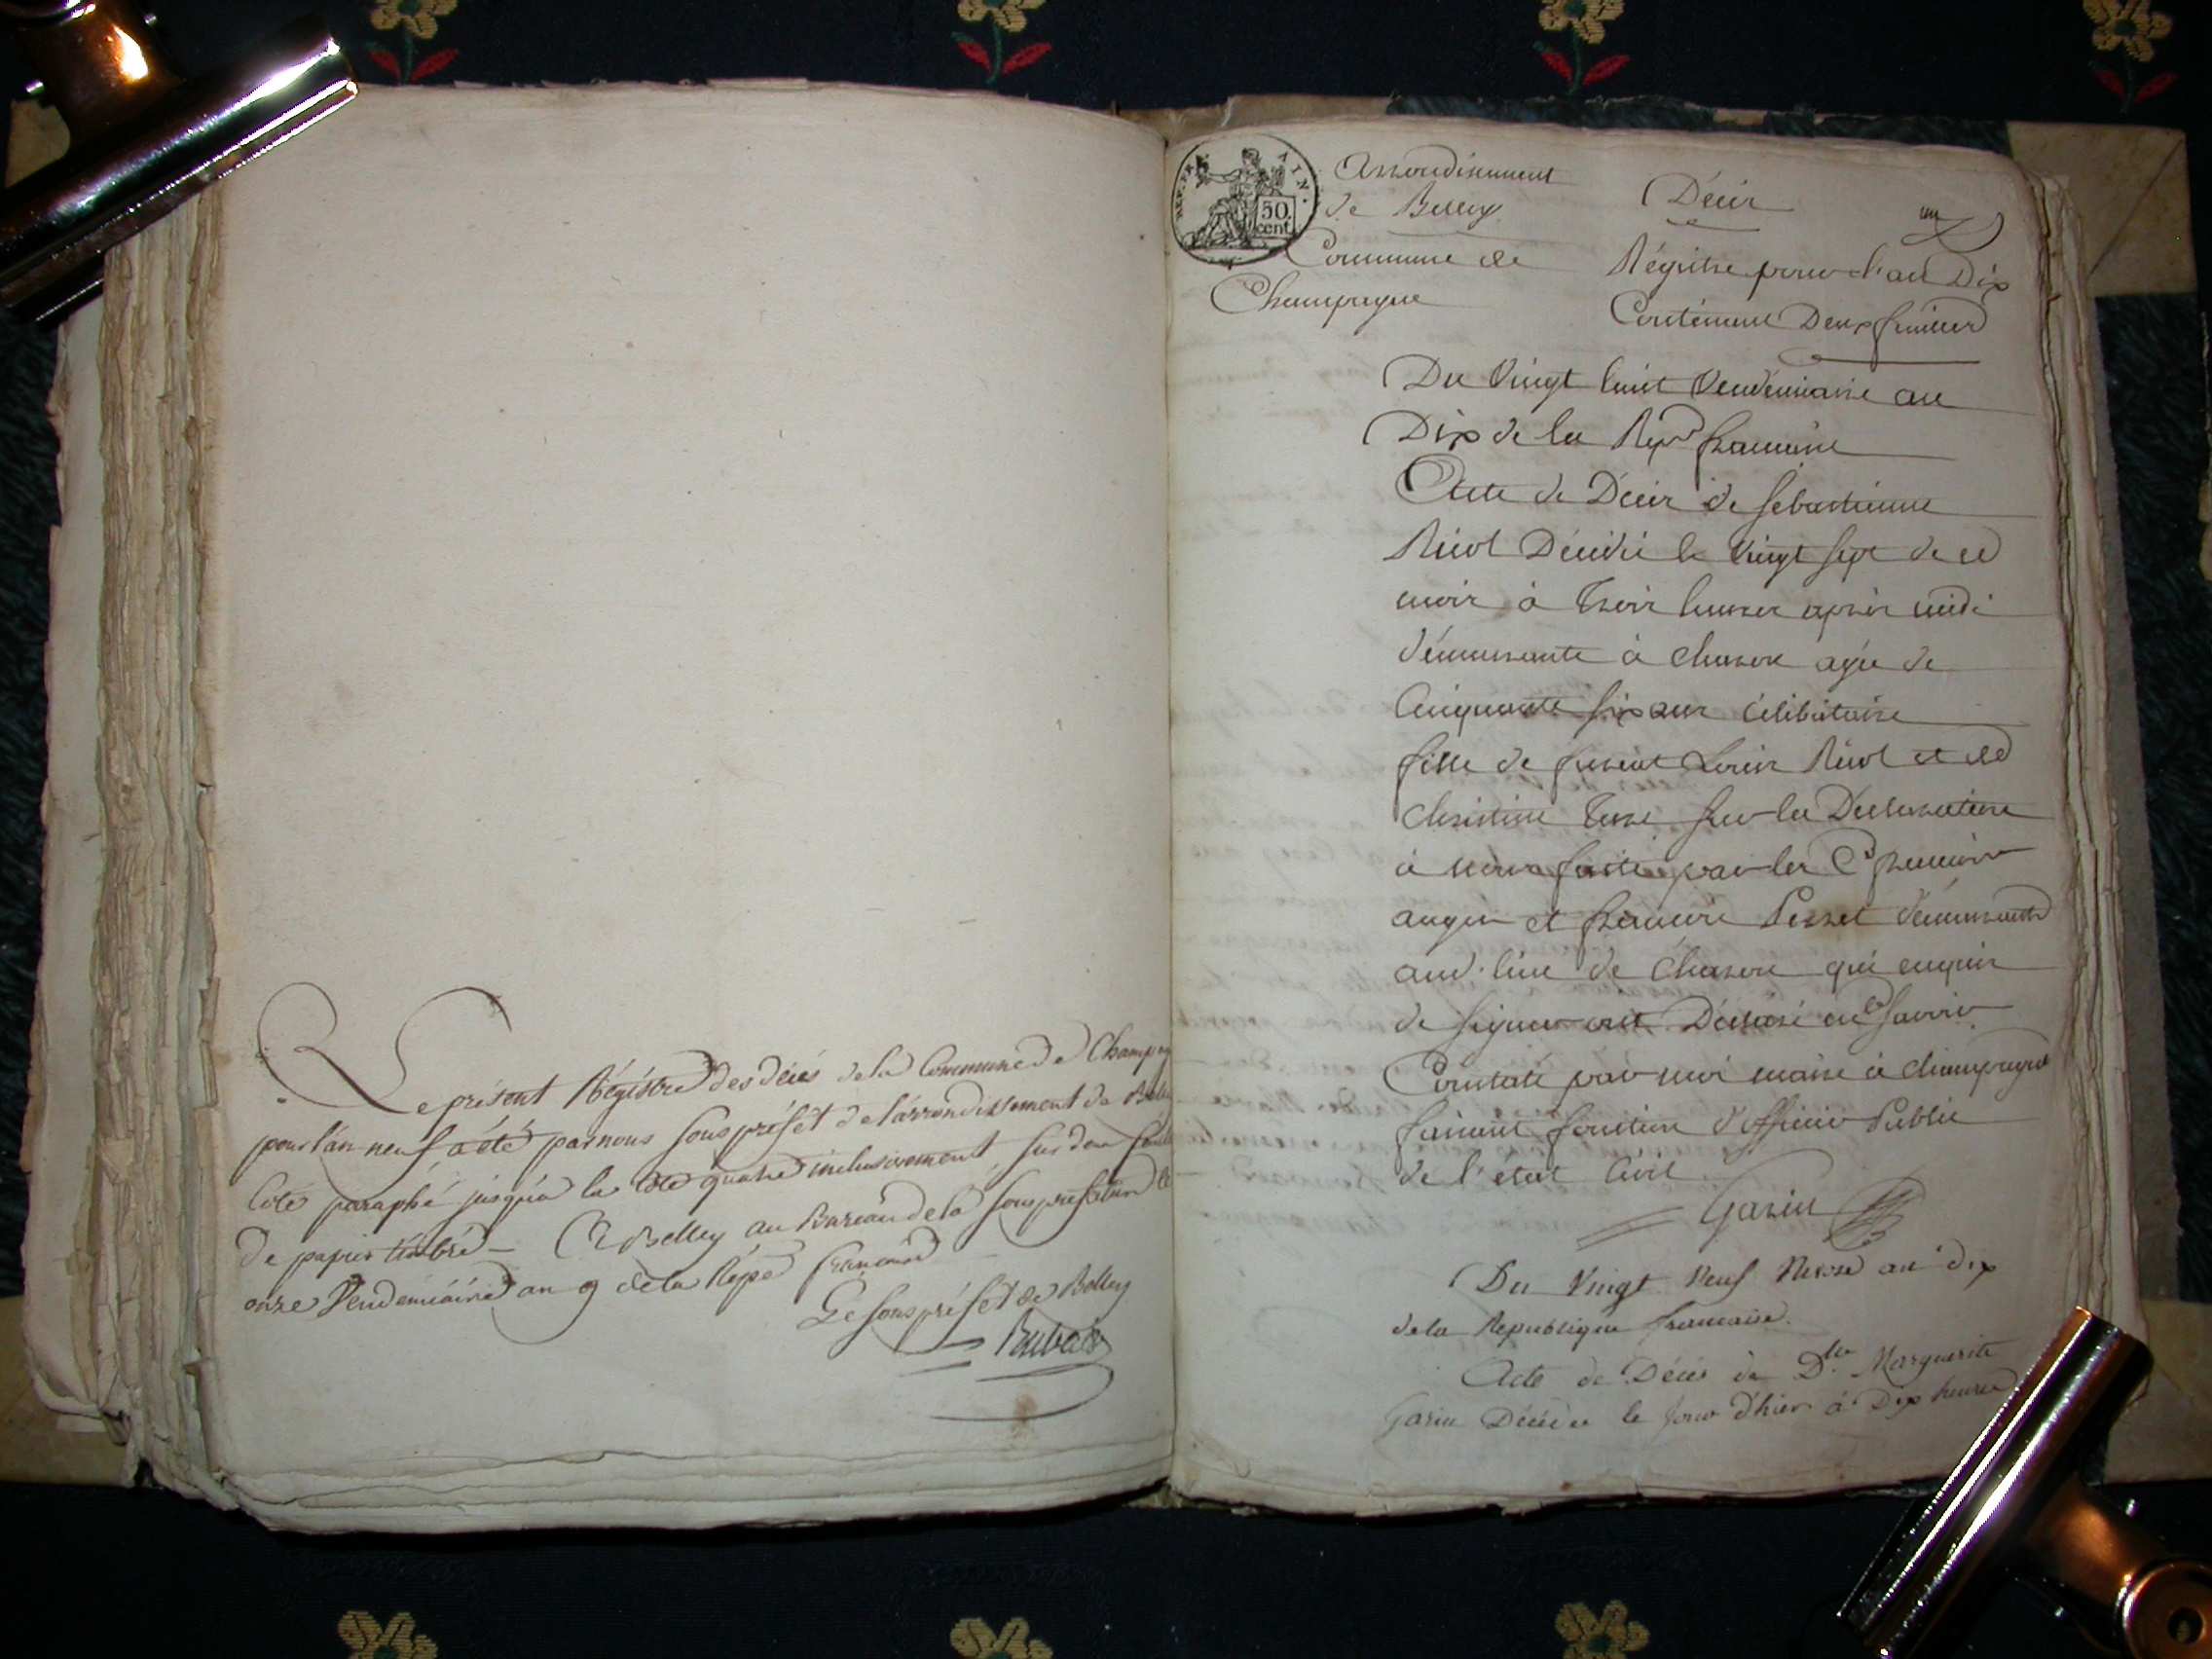 Le présent Régistre des décés de la Commune de Champag
pour l'an neuf a été par nous sous préfêt de l'arrondissement de Belle
Coté paraphé jusqu'a la Cote quatre inclusivement, sur deux feuill
de papier timbré - A Belley au Bureau de la souspréfecture le
onze Vendemiaire an 9 de la Répe francaise
Le sous préfêt de Belley
REP. FRA. AIN.
50 cent.
Arrondissement
de Belley
Commune de
Champagne
Décès
un
Régitre pour l'an Dix
Contenant Deux feuilles
Du Vingt huit Vendemiaire an
Dix de la Repe francaise
Acte de Décès de sebastienne
Décédée le Vingt sept de ce
mois à trois heures après midi
démeurante à agée de
Cinquante six ans Célibataire
fille de Louis et de
Christine sur la Déclaration
à nous faitte par les Cs francois
et francois Perret démeurants
aud. lieu de qui enquis
de signer ont Déclaré ne savoir
Constaté par moi maire à champagne
faisant fonction d'officier Public
de l'état Civil
Garin
Du Vingt Neuf Nivose an dix
de la Republique francaise.
Acte de Décés de Dlle Marguerite
Garin Décédée le jour d'hier à Dix heures